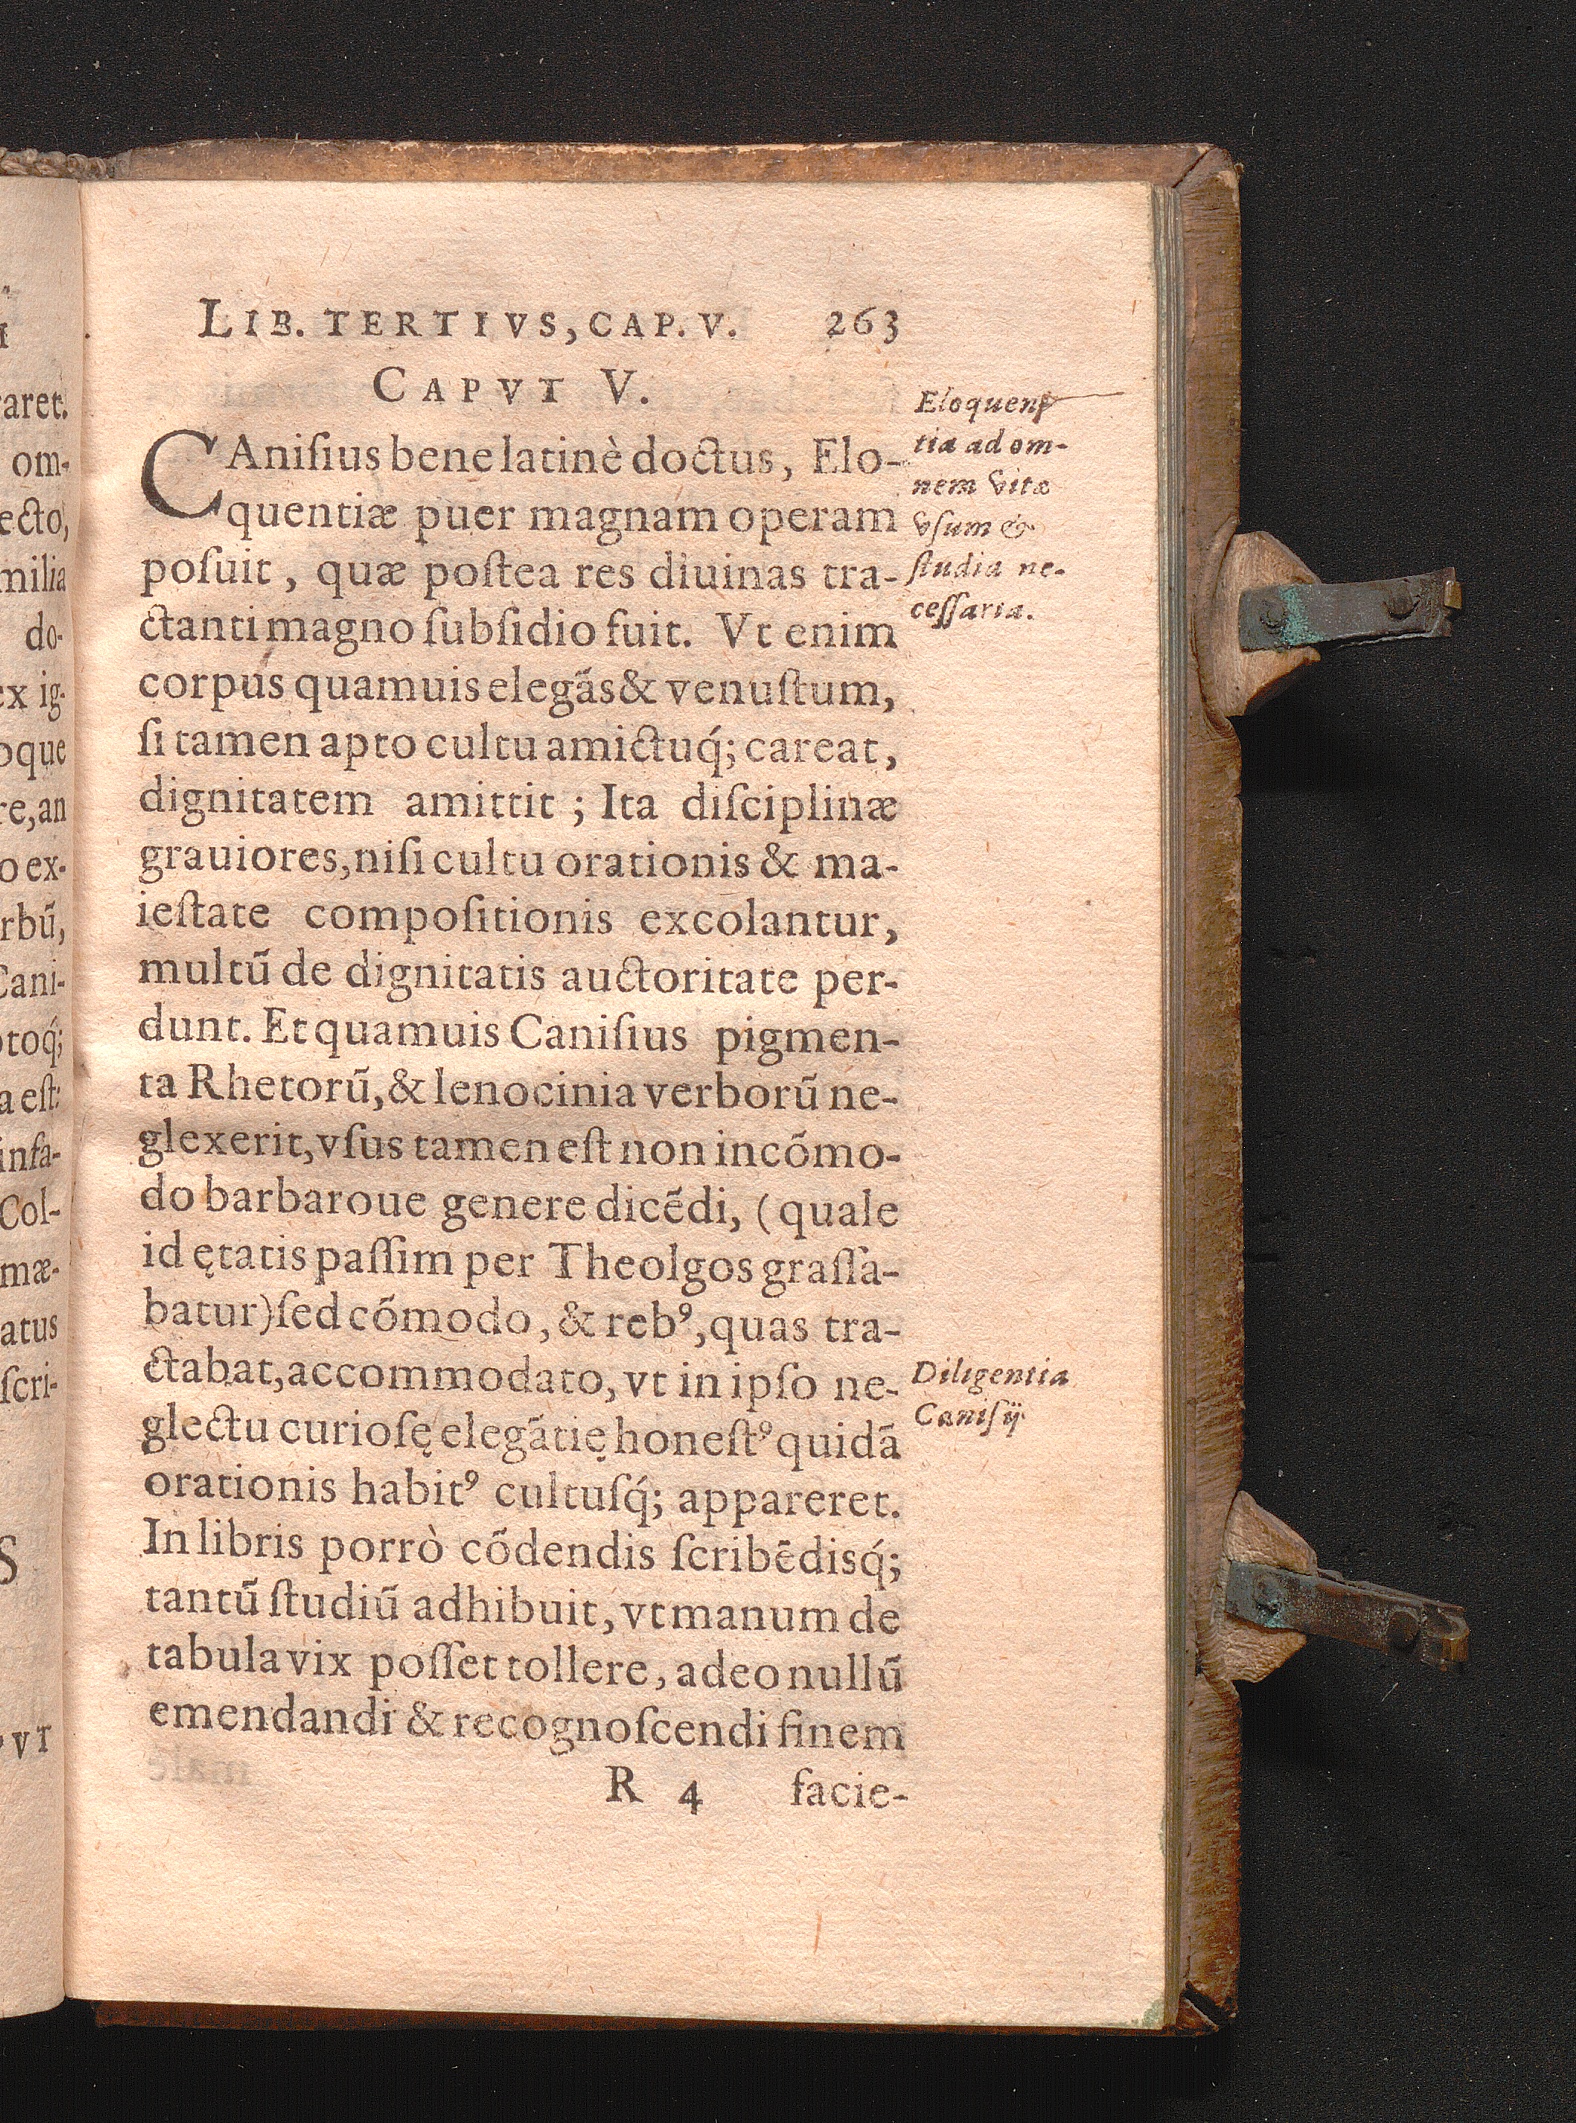 LIB. TERTIVS, CAP. V. 263
CAPVT V.
CAniſius bene latinè doctus, Elo-
quentiæ puer magnam operam
poſuit, quæ poſtea res diuinas tra-
ctanti magno ſubſidio fuit. Vt enim
corpus quamuis elegãs & venuſtum,
ſi tamen apto cultu amictuq́; careat,
dignitatem amittit; Ita diſciplinæ
grauiores, niſi cultu orationis & ma-
ieſtate compoſitionis excolantur,
multũ de dignitatis auctoritate per-
dunt. Et quamuis Caniſius pigmen-
ta Rhetorũ, & lenocinia verborũ ne-
glexerit, vſus tamen eſt non incõmo-
do barbaroue genere dicẽdi, (quale
id ętatis paſſim per Theolgos graſſa-
batur) ſed cõmodo, & rebꝰ, quas tra-
ctabat, accommodato, vt in ipſo ne-
glectu curioſę elegãtię honeſtꝰ quidã
orationis habitꝰ cultuſq́; appareret.
In libris porrò cõdendis ſcribẽdisq́;
tantũ ſtudiũ adhibuit, vt manum de
tabula vix poſſet tollere, adeo nullũ
emendandi & recognoſcendi finem
R 4 facie-
Eloquen-
tia ad om-
nem vitæ
vſum &
ſtudia ne-
ceſſaria.
Diligentia
Caniſij.
aret.
om-
ecto,
milia
do-
ex ig-
oque
re, an
o ex-
rbũ,
Cani-
toq́;
a eſt:
infa-
Col-
mæ-
atus
ſcri-
S
VT